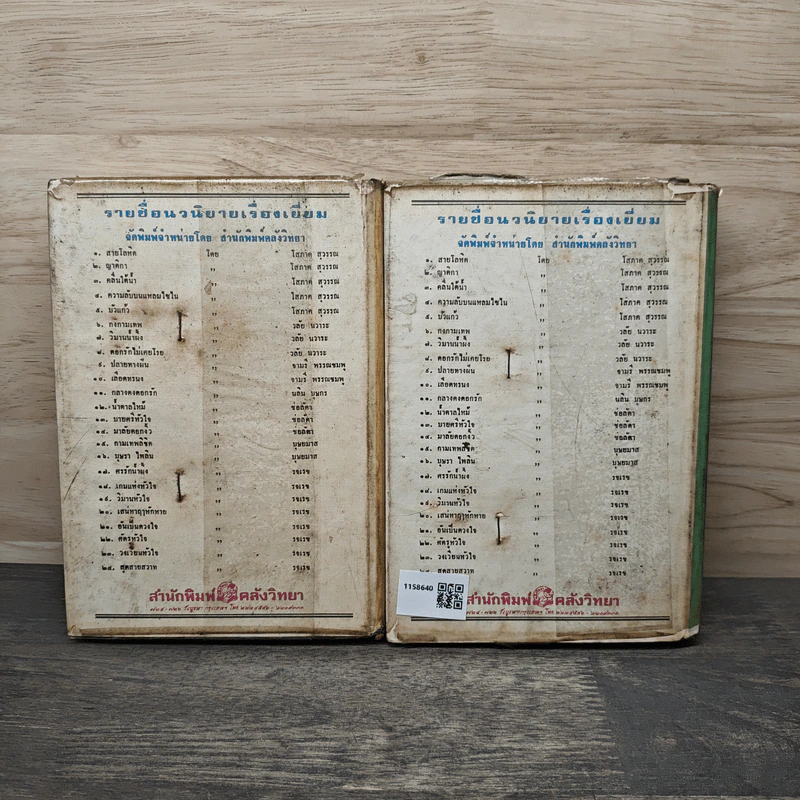 รายชื่อนวนิยายเรื่องเยี่ยม
จัดพิมพ์จำหน่ายโดย สำนักพิมพ์คลังวิทยา
๑. สายโลหิต โดย โสภาค สุวรรณ
๒. ญาติกา ,, โสภาค สุวรรณ
๓. คลื่นใต้น้ำ ,, โสภาค สุวรรณ
๔. ความลับบนแหลมไซไน ,, โสภาค สุวรรณ
๕. บัวแก้ว ,, โสภาค สุวรรณ
๖. กงกามเทพ ,, วลัย นวาระ
๗. วิมานน้ำผึ้ง ,, วลัย นวาระ
๘. ดอกรักไม่เคยโรย ,, วลัย นวาระ
๙. ปลายทางฝัน ,, จามรี พรรณชมพู
๑๐. เลือดทรนง ,, จามรี พรรณชมพู
๑๑. กลางดงดอกรัก ,, นลิน บุษกร
๑๒. น้ำตาลไหม้ ,, ช่อลัดา
๑๓. นายตรีหัวใจ ,, ช่อลัดา
๑๔. มาลัยดอกงิ้ว ,, ช่อลัดา
๑๕. กามเทพลิขิต ,, บุษยมาส
๑๖. บุษรา ไพลิน ,, บุษยมาส
๑๗. ศรรักน้ำผึ้ง ,, รจเรข
๑๘. เกมแห่งหัวใจ ,, รจเรข
๑๙. วิมานหัวใจ ,, รจเรข
๒๐. เสน่หาฤาหักหาย ,, รจเรข
๒๑. อันเป็นดวงใจ ,, รจเรข
๒๒. ศัตรูหัวใจ ,, รจเรข
๒๓. วงเวียนหัวใจ ,, รจเรข
๒๔. สุดสายสวาท ,, รจเรข
สำนักพิมพ์ คลังวิทยา
รายชื่อนวนิยายเรื่องเยี่ยม
จัดพิมพ์จำหน่ายโดย สำนักพิมพ์คลังวิทยา
๑. สายโลหิต โดย โสภาค สุวรรณ
๒. ญาติกา ,, โสภาค สุวรรณ
๓. คลื่นใต้น้ำ ,, โสภาค สุวรรณ
๔. ความลับบนแหลมไซไน ,, โสภาค สุวรรณ
๕. บัวแก้ว ,, โสภาค สุวรรณ
๖. กงกามเทพ ,, วลัย นวาระ
๗. วิมานน้ำผึ้ง ,, วลัย นวาระ
๘. ดอกรักไม่เคยโรย ,, วลัย นวาระ
๙. ปลายทางฝัน ,, จามรี พรรณชมพู
๑๐. เลือดทรนง ,, จามรี พรรณชมพู
๑๑. กลางดงดอกรัก ,, นลิน บุษกร
๑๒. น้ำตาลไหม้ ,, ช่อลัดา
๑๓. นายตรีหัวใจ ,, ช่อลัดา
๑๔. มาลัยดอกงิ้ว ,, ช่อลัดา
๑๕. กามเทพลิขิต ,, บุษยมาส
๑๖. บุษรา ไพลิน ,, บุษยมาส
๑๗. ศรรักน้ำผึ้ง ,, รจเรข
๑๘. เกมแห่งหัวใจ ,, รจเรข
๑๙. วิมานหัวใจ ,, รจเรข
๒๐. เสน่หาฤาหักหาย ,, รจเรข
๒๑. อันเป็นดวงใจ ,, รจเรข
๒๒. ศัตรูหัวใจ ,, รจเรข
๒๓. วงเวียนหัวใจ ,, รจเรข
สุดสายสวาท ,, รจเรข
1158640
สำนักพิมพ์ คลังวิทยา